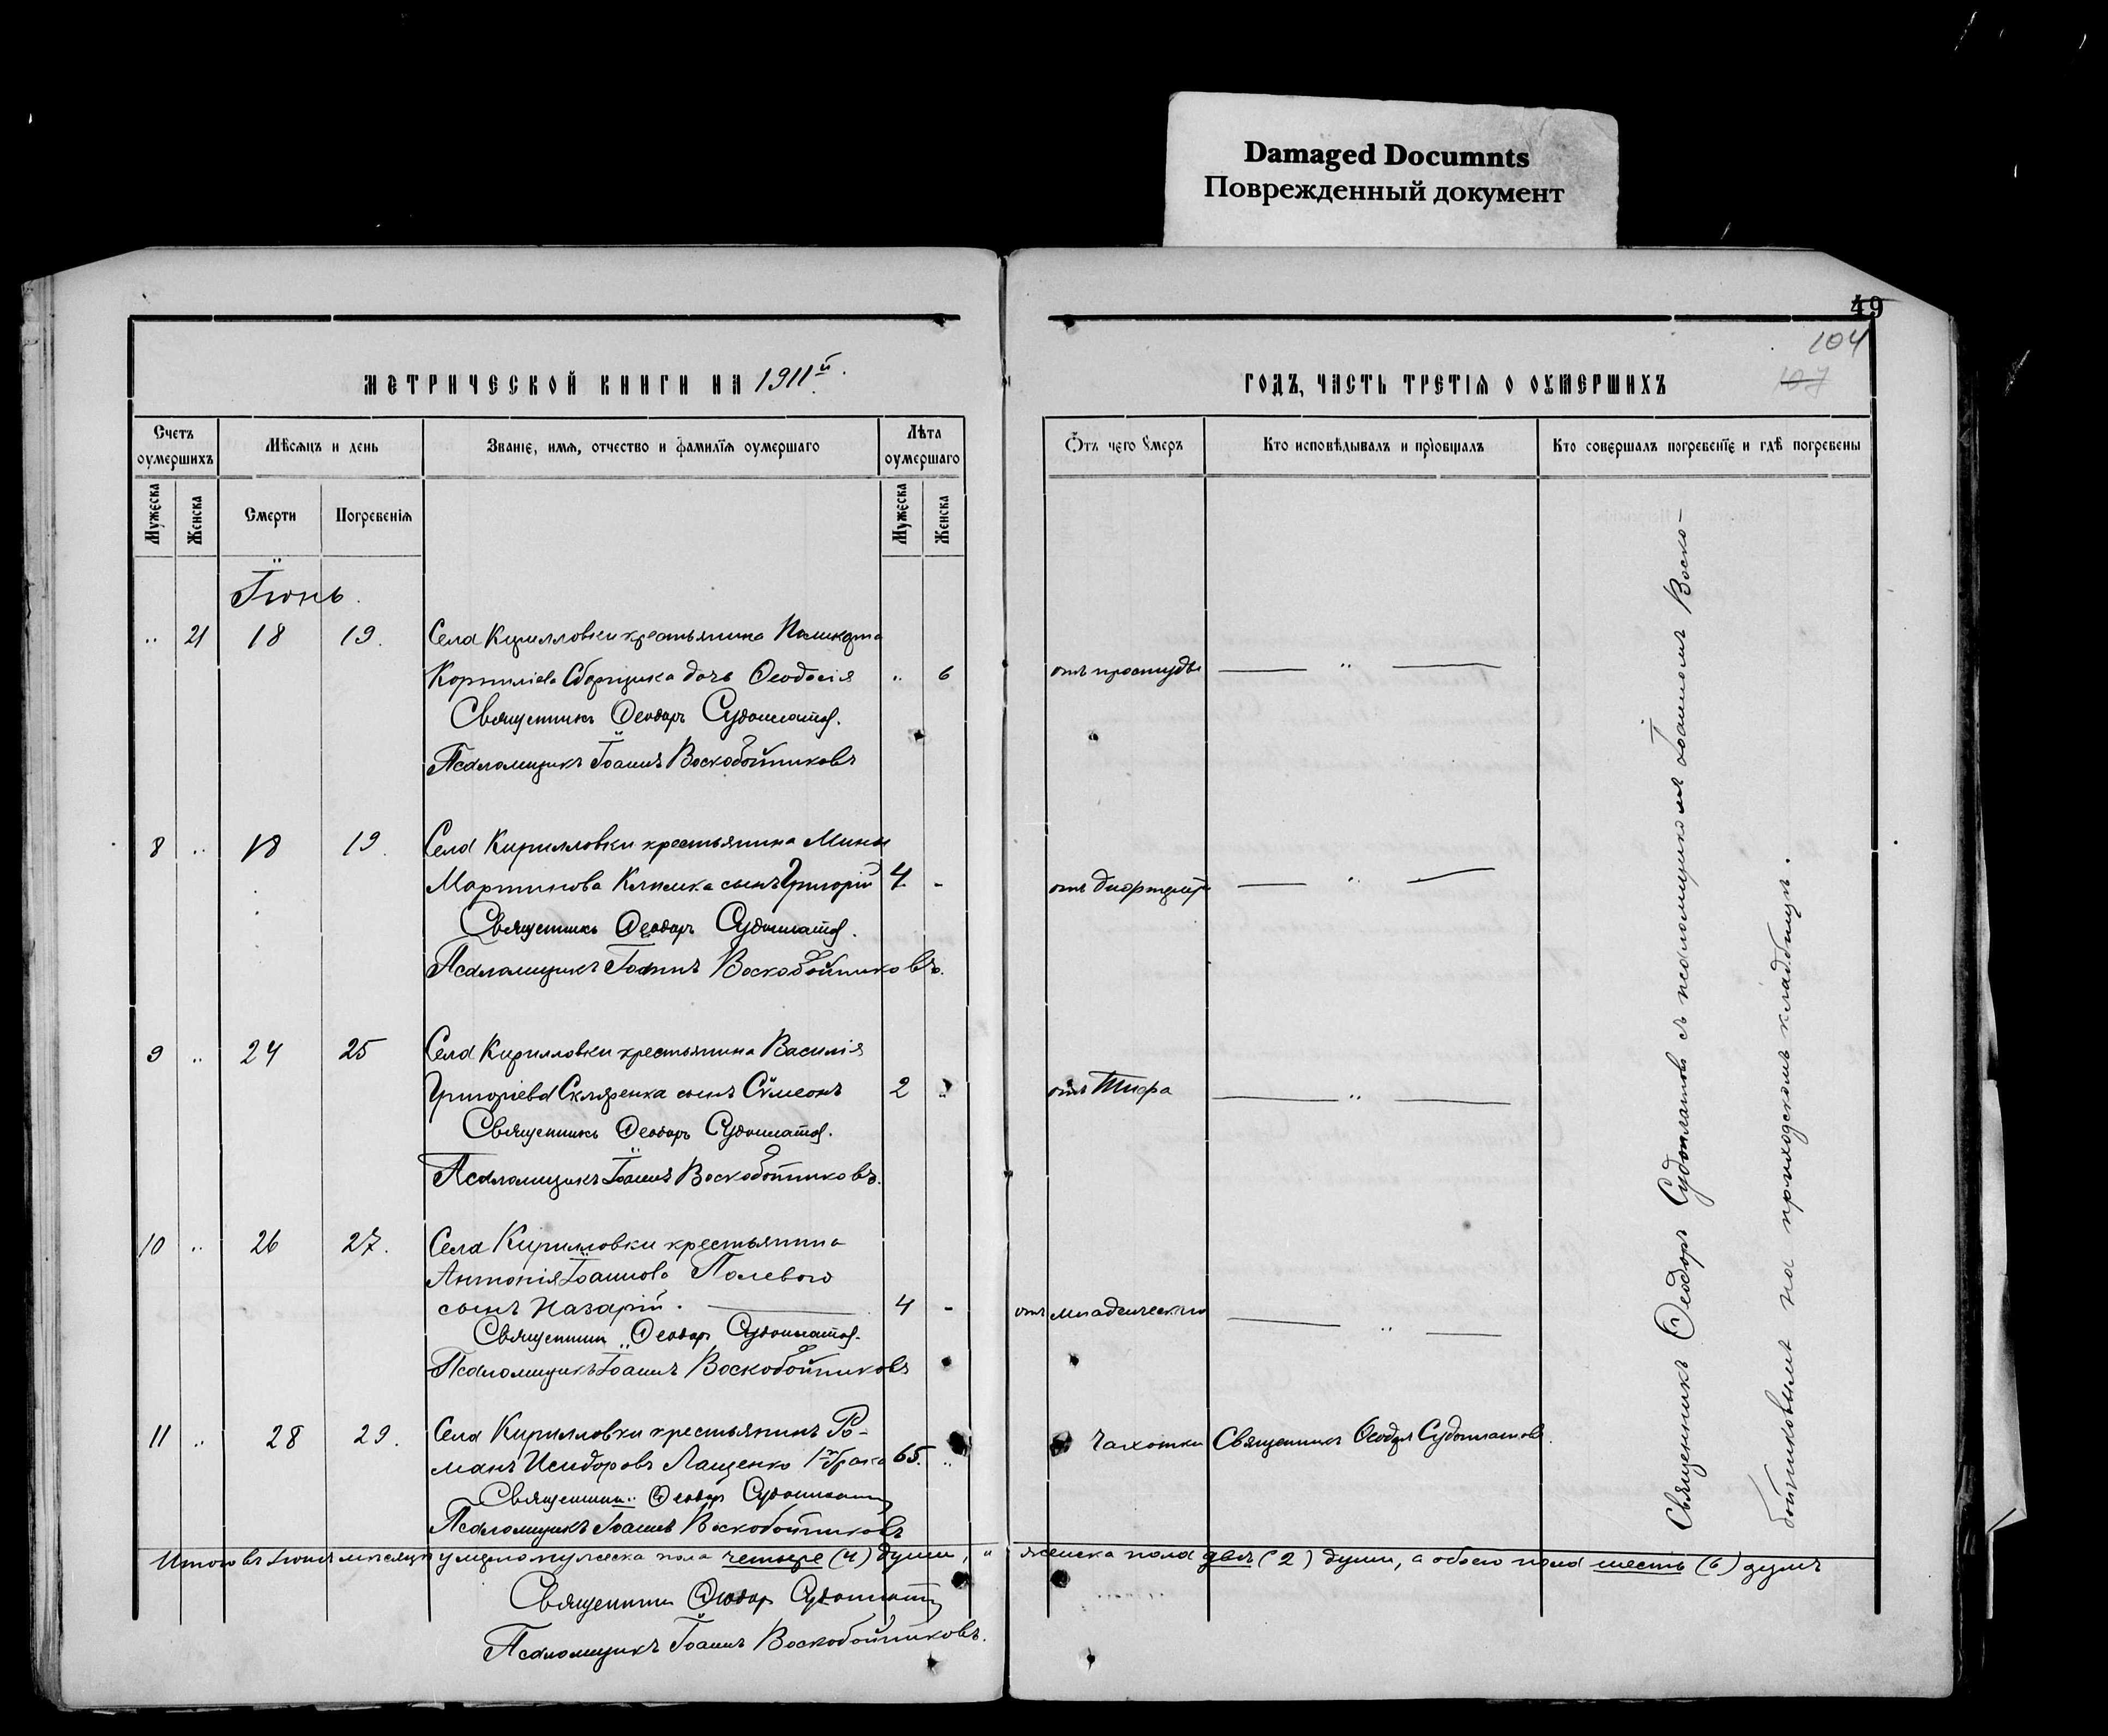 Damaged Documnts
Поврежденный документ
49
104
107
МЕТРИЧЕСКОЙ КНИГИ НА 1911й.
ГОДЪ, ЧАСТЬ ТРЕТІЯ О ОУМЕРШИХЪ
Счетъ оумершихъ
Мѣсяцъ и день
Званіе, имя, отчество и фамилія оумершаго
Лѣта оумершаго
Отъ чего умеръ
Кто исповѣдывалъ и пріобщалъ
Кто совершалъ погребеніе и гдѣ погребены
Мужеска
Женска
Смерти
Погребенія
Мужеска
Женска
Іюнь.
" 21 18 19. Села Кирилловки крестьянина
Корнилієва Сборщика дочь Ѳеодосія " 6 отъ простуды — " —
Священникъ Ѳеодоръ Судоплатов.
Псаломщикъ Іоаннъ Воскобойниковъ
8 " 18 19. Села Кирилловки крестьянина Мины
Мартинова Климка сынъ Григорій 4 - отъ — " —
Священникъ Ѳеодоръ Судоплатов.
Псаломщикъ Іоаннъ Воскобойниковъ.
9 " 24 25 Села Кирилловки крестьянина Василія
Григоріева Скляренка сынъ Сѵмеонъ 2 " отъ Тифа — " —
Священникъ Ѳеодоръ Судоплатов.
Псаломщикъ Іоаннъ Воскобойниковъ.
10 " 26 27. Села Кирилловки крестьянина
Антонія Іоаннова Полевого
сынъ Назарій. — 4 - отъ младенческаго — " —
Священник Ѳеодоръ Судоплатов.
Псаломщикъ Іоаннъ Воскобойниковъ
11 " 28 29. Села Кирилловки крестьянинъ Ро-
манъ Исидоровъ Лащенко 1го брака 65. " Чахотки Священникъ Ѳеодоръ Судоплатовъ.
Священник Ѳеодоръ Судоплатов
Псаломщикъ Іоаннъ Воскобойниковъ
Священникъ Ѳеодоръ Судоплатовъ съ псаломщикомъ Іоанномъ Воско-
бойниковымъ на приходскомъ кладбищѣ.
Итого въ Іюнѣ мѣсяцѣ умерло мужеска пола четыре (4) души, и женска пола двѣ (2) души, а обоего пола шесть (6) душъ
Священник Ѳеодоръ Судоплатов
Псаломщикъ Іоаннъ Воскобойниковъ.